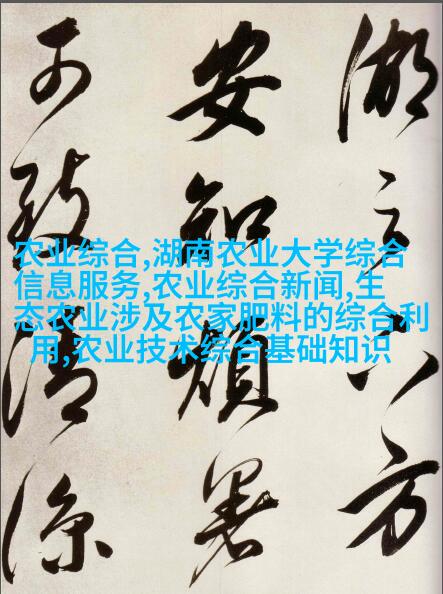 方
安知煩暑
可致清涼
农业综合,湖南农业大学综合
信息服务,农业综合新闻,生
态农业涉及农家肥料的综合利
用,农业技术综合基础知识